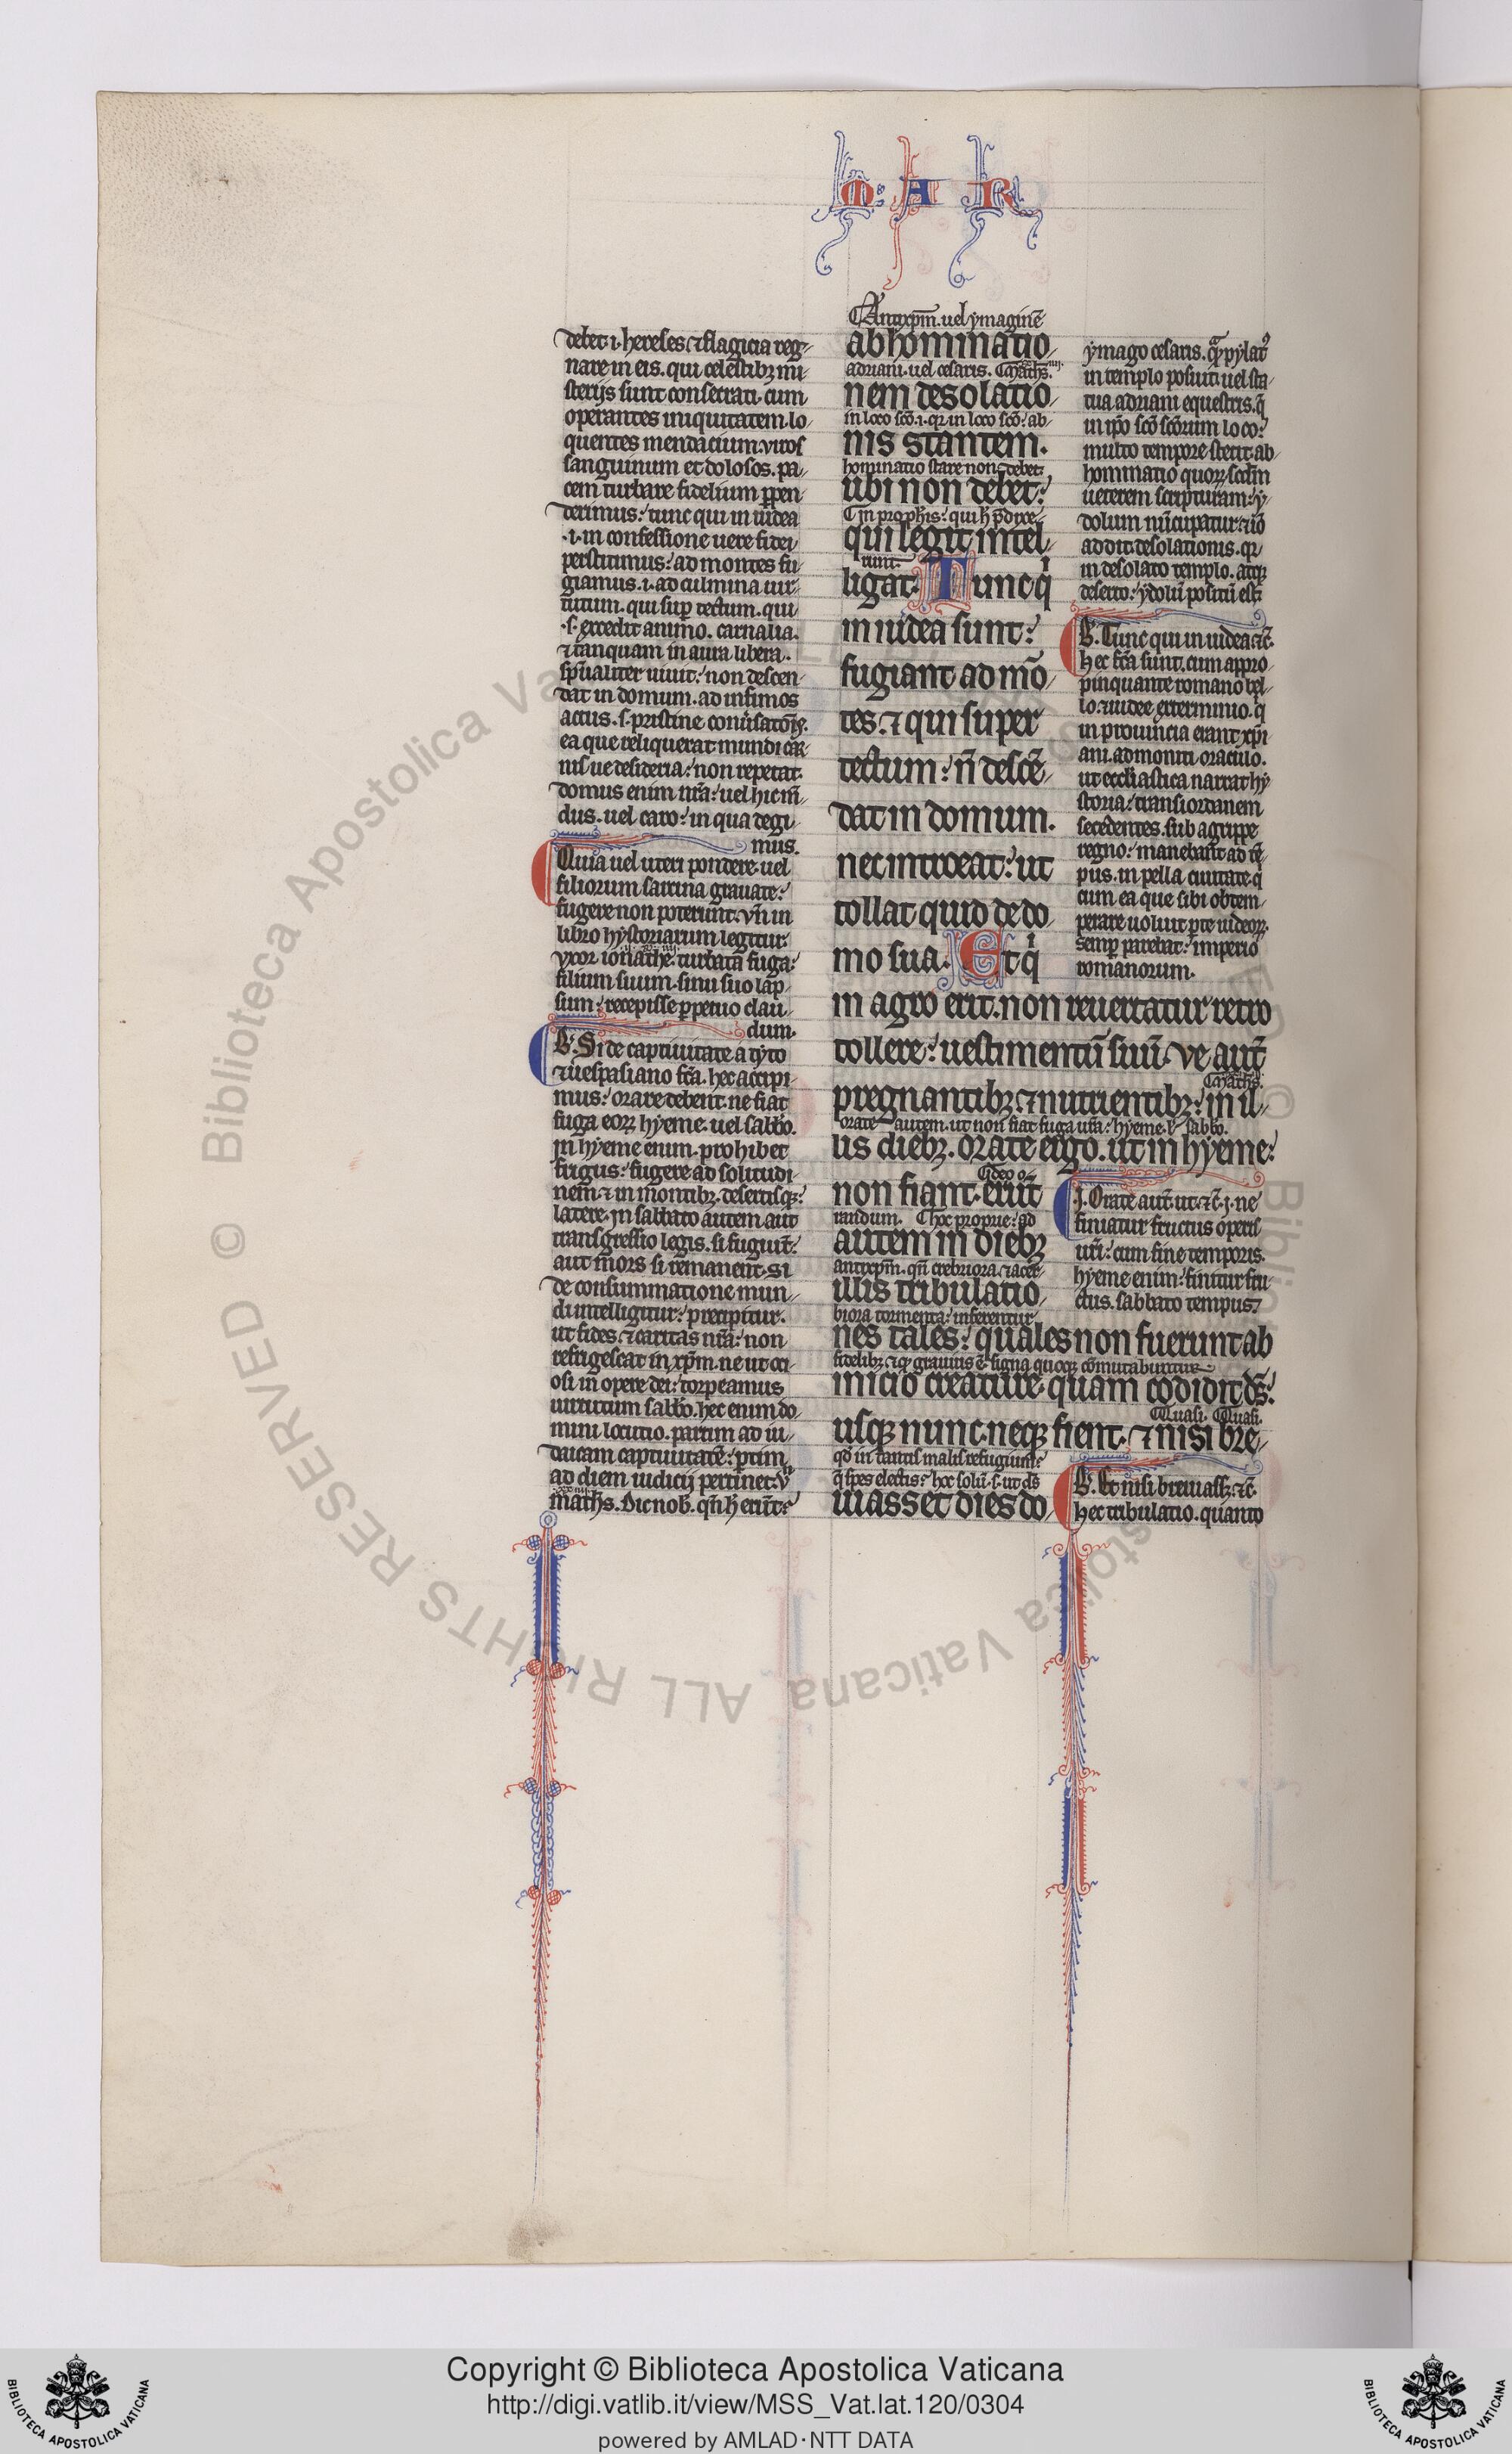 M A R
debet .i. hereses ⁊ flagicia reg-
nare in eis. qui celestibꝫ mi-
sterijs sunt consecrati. cum
operantes iniquitatem. lo-
quentes mendacium. viros
sanguinum et dolosos. pa-
cem turbare fidelium ꝑpen-
derimus: tunc qui in iudea
.i. in confessione uere fidei
perstitimus: ad montes fu-
giamus .i. ad culmina uir-
tutum. qui suꝑ tectum. qui
.s. excedit animo. carnalia.
⁊ tanquam in aura libera.
sp̄ualiter uiuit: non descen-
dat in domum. ad infimos
actus .s. pristine conu̓satōis.
ea que reliquerat mundi car-
nisue desideria: non repetat.
domus enim nr̄a: uel hic mū-
dus. uel caro: in qua degi-
mus.
Quia uel uteri pondere. uel
filiorum sarcina grauate:
fugere non poterunt. vn̄ in
libro hystoriarum legitur.
vxor ionathe. turbata fuga:
filium suum. sinu suo lap-
sum: recepisse ꝑpetuo clau-
dum.
B. Si de captiuitate a tyto
⁊ uespasiano fc̄a. hec accipi-
mus: orare debent. ne fiat
fuga eorꝝ hyeme. uel sabb̄o.
in hyeme enim. prohibet
frigus: fugere ad solitudi-
nem ⁊ in montibꝫ. desertisqꝫ:
latere. in sabbato autem aut
transgressio legis. si fugiūt:
aut mors si remanent. si
de consummatione mun-
di intelligitur: precipitur.
ut fides ⁊ caritas nr̄a: non
refrigescat in xp̄m. ne ut oci-
osi in opere dei: torpeamus
uirtutum sabb̄o. hec enim do-
mini locutio. partim ad iu-
daicam captiuitatē: ꝑtim
ad diem iudicij pertinet. vn̄
maths. Dic nob. qn̄ h̓ erūt:
Antixp̄m. uel ymaginē
abhominatio-
adriani. uel cesaris. Maths.
nem desolatio-
in loco scō .i. qr in loco scō: ab-
nis stantem.
hominatio stare non debet.
ubi non debet:
in proph̓is: qui h̓ p̄dixe-
qui legit intel-
runt.
ligat. Tunc qⁱ
in iudea sunt:
fugiant ad mō-
tes. ⁊ qui super
tectum: n̄ descē-
dat in domum.
nec introeat: ut
tollat quid de do-
mo sua. Et qⁱ
in agro erit. non reuertatur retro
tollere: uestimentū suū. Ve aut̄
Maths.
pregnantibꝫ ⁊ nutrientibꝫ: in il-
orate autem. ut non fiat fuga ur̄a: hyeme. ł sabb̄o.
lis diebꝫ. orate ergo. ut in hyeme:
Ideo o-
non fiant. erūt
randum. hoc proprie: ad
autem in diebꝫ
antixp̄m. qn̄ crebriora ⁊ acer-
illis tribulatio-
biora tormenta: inferentur
nes tales: quales non fuerunt ab
fidelibꝫ ⁊ qd̓ grauius ē. signa quoqꝫ cōmutabuntur
inicio creature. quam codidit ds̄:
Quasi. Quasi.
usqꝫ nunc. neqꝫ fient. ⁊ nisi bre-
qd̓ in tantis malis refugium:
q̄ spes electis: hoc solū .s. ut ds̄
uiasset dies do-
ymago cesaris. quā pylatꝰ
in templo posuit: uel sta-
tua adriani equestris. q̄
in ip̄o scō scōrum loco:
multo tempore stetit. ab-
hominatio quorꝝ. scd̄m
ueterem scripturam: y-
dolum nūcupatur. ⁊ iō
addit. desolationis. qr
in desolato templo. atqꝫ
deserto: ydolū positū est.
B. Tunc qui in iudea ⁊c̄.
hec fc̄a sunt. cum appro-
pinquante romano bel-
lo. ⁊ iudee exterminio. q̄
in prouincia erant xp̄i-
ani. admoniti oraculo.
ut eccl̓iastica narrat hy-
storia: trans iordanem
secedentes. sub agrippe
regno: manebant ad tē-
pus. in pella ciuitate. q̄
cum ea que sibi obtem-
perare uoluit ꝑte iudeorꝝ.
semꝑ parebat: imperio
romanorum.
.j. Orate aut̄. ut. ⁊c̄. j. ne
finiatur fructus operis
ur̄i: cum fine temporis.
hyeme enim: finitur fru-
ctus. sabbato tempus.
B. Et nisi breuiassꝫ. ⁊c̄.
hec tribulatio. quanto
© Biblioteca Apostolica Vaticana ALL RIGHTS RESERVED
Copyright © Biblioteca Apostolica Vaticana
http://digi.vatlib.it/view/MSS_Vat.lat.120/0304
powered by AMLAD·NTT DATA
BIBLIOTECA APOSTOLICA VATICANA
BIBLIOTECA APOSTOLICA VATICANA